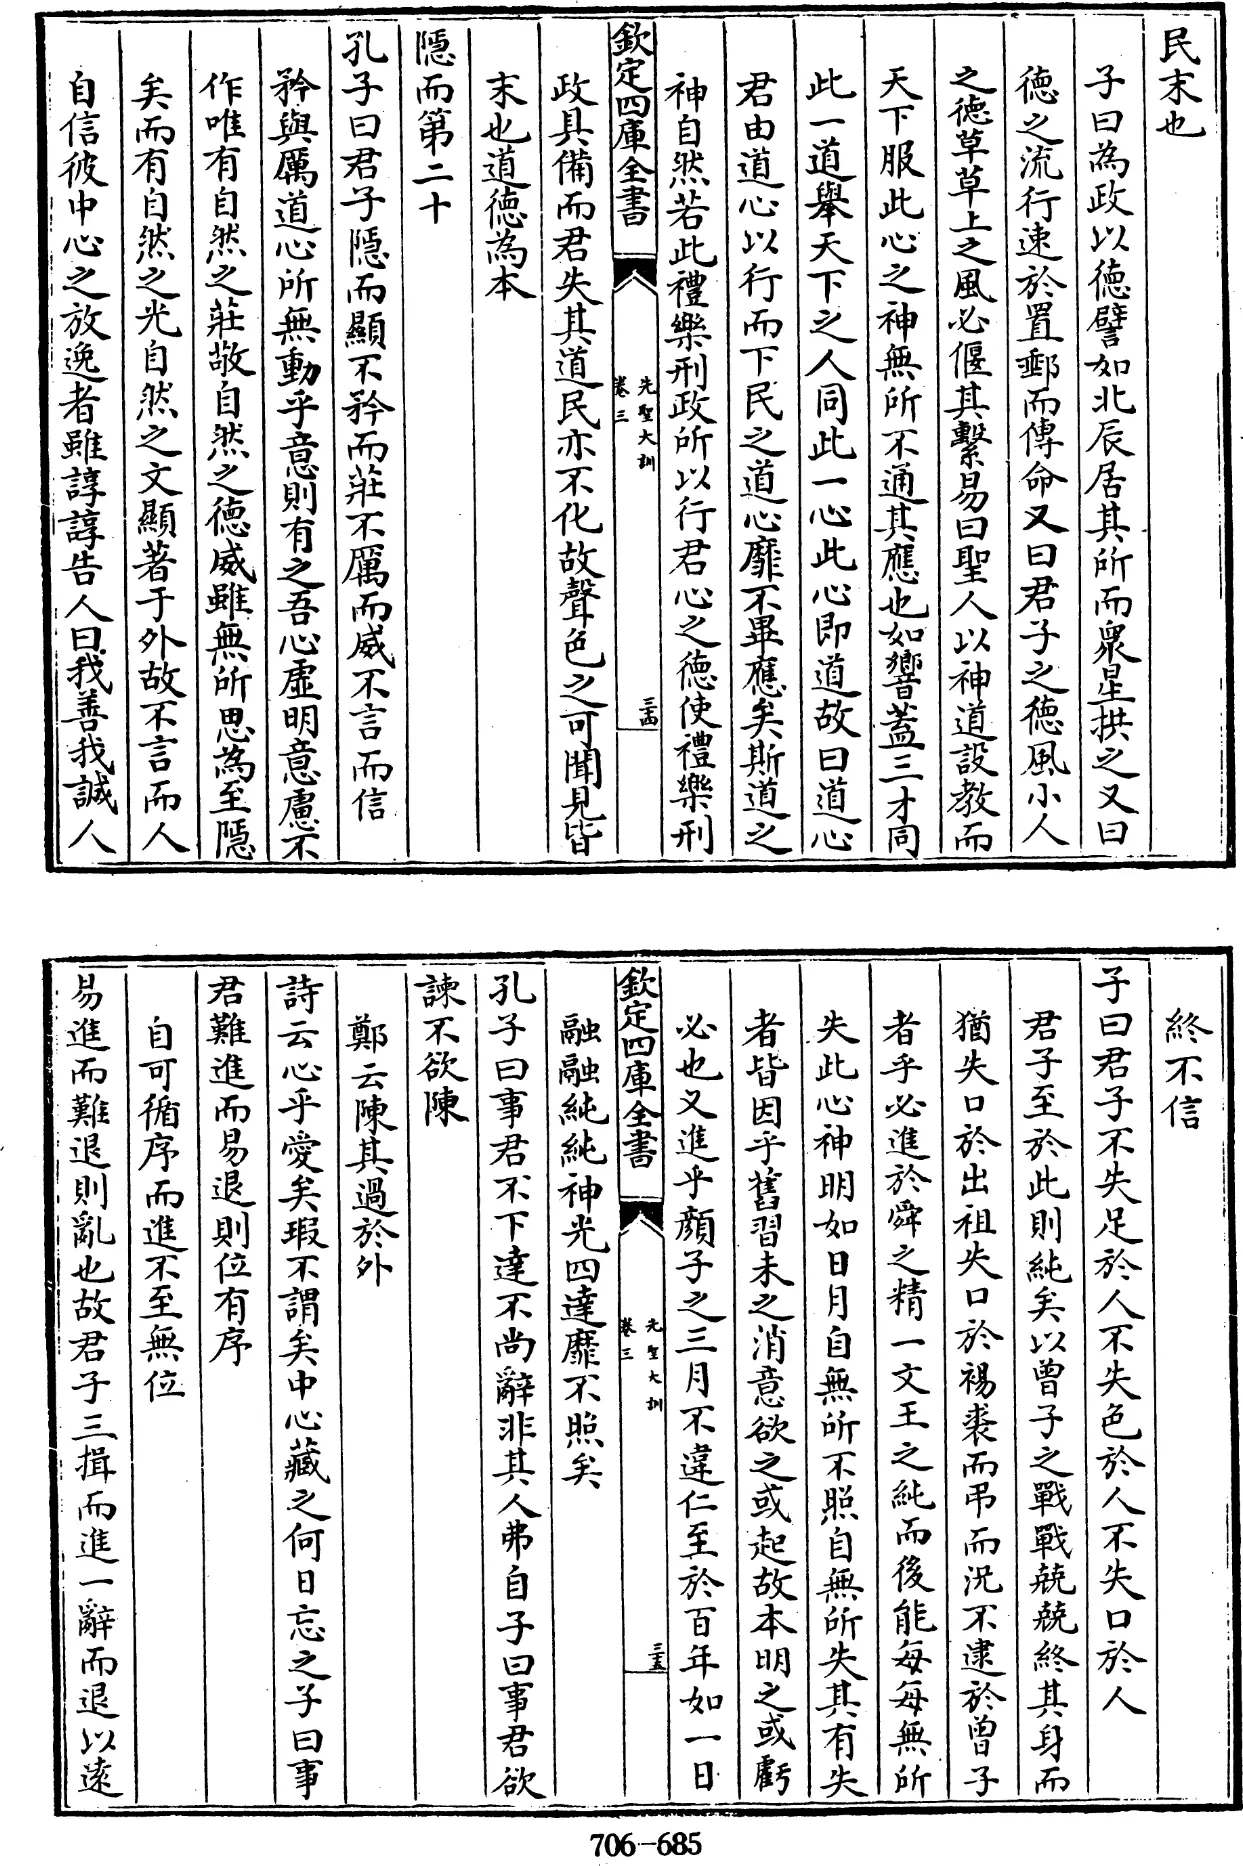 民末也
子曰為政以德譬如北辰居其所而衆星拱之又曰
德之流行速於置郵而傳命又曰君子之德風小人
之德草草上之風必偃其繫易曰聖人以神道設教而
天下服此心之神無所不通其應也如響蓋三才同
此一道舉天下之人同此一心此心即道故曰道心
君由道心以行而下民之道心靡不畢應矣斯道之
神自然若此禮樂刑政所以行君心之德使禮樂刑
欽定四庫全書
先聖大訓
卷三
三十四
政具備而君失其道民亦不化故聲色之可聞見皆
末也道德為本
隱而第二十
孔子曰君子隱而顯不矜而莊不厲而威不言而信
矜與厲道心所無動乎意則有之吾心虛明意慮不
作唯有自然之莊敬自然之德威雖無所思為至隱
矣而有自然之光自然之文顯著于外故不言而人
自信彼中心之放逸者雖諄諄告人曰我善我誠人
終不信
子曰君子不失足於人不失色於人不失口於人
君子至於此則純矣以曾子之戰戰兢兢終其身而
猶失口於出祖失口於裼裘而弔而況不逮於曾子
者乎必進於舜之精一文王之純而後能每每無所
失此心神明如日月自無所不照自無所失其有失
者皆因乎舊習未之消意欲之或起故本明之或虧
必也又進乎顔子之三月不違仁至於百年如一日
欽定四庫全書
先聖大訓
卷三
三十五
融融純純神光四達靡不照矣
孔子曰事君不下達不尚辭非其人弗自子曰事君欲
諫不欲陳
鄭云陳其過於外
詩云心乎愛矣瑕不謂矣中心藏之何日忘之子曰事
君難進而易退則位有序
自可循序而進不至無位
易進而難退則亂也故君子三揖而進一辭而退以遠
706-685